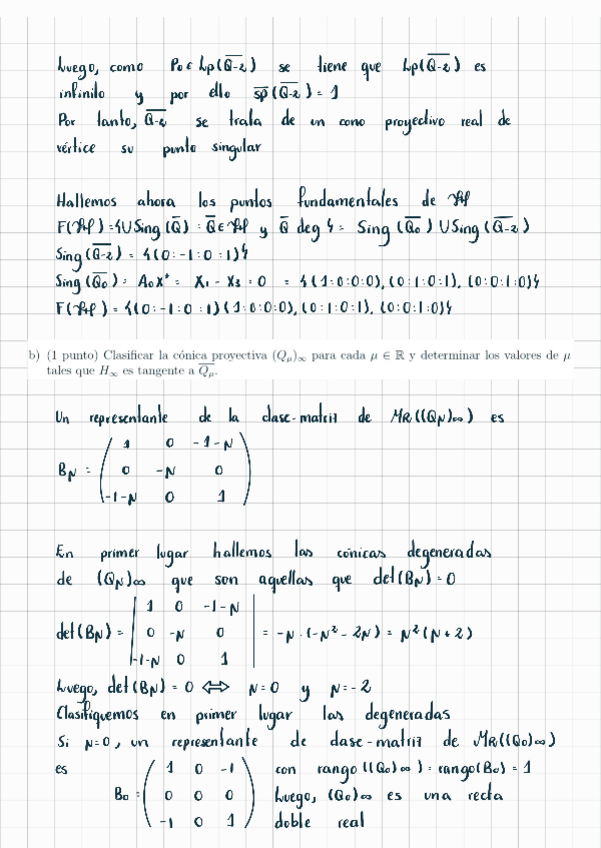 Luego, como P₀ ∈ Lp(Q̅₋₂) se tiene que Lp(Q̅₋₂) es
infinito y por ello s̅p̅(Q̅₋₂) = 1
Por tanto, Q̅₋₂ se trata de un cono proyectivo real de
vértice su punto singular
Hallemos ahora los puntos fundamentales de ℋ
F(ℋ) = {∪ Sing(Q̅) : Q̅ ∈ ℋ y Q̅ deg} = Sing(Q̅₀) ∪ Sing(Q̅₋₂)
Sing(Q̅₋₂) = {(0:-1:0:1)}
Sing(Q̅₀) = A₀xᵗ = X₁ - X₃ = 0 = {(1:0:0:0), (0:1:0:1), (0:0:1:0)}
F(ℋ) = {(0:-1:0:1)(1:0:0:0), (0:1:0:1), (0:0:1:0)}
b) (1 punto) Clasificar la cónica proyectiva (Q_μ)_∞ para cada μ ∈ ℝ y determinar los valores de μ
tales que H_∞ es tangente a Q̅_μ.
Un representante de la clase-matriz de MR((Qμ)∞) es
Bμ = ( 1 0 -1-μ
0 -μ 0
-1-μ 0 1 )
En primer lugar hallemos las cónicas degeneradas
de (Qμ)∞ que son aquellas que det(Bμ) = 0
det(Bμ) = | 1 0 -1-μ
0 -μ 0
-1-μ 0 1 | = -μ · (-μ² - 2μ) = μ²(μ + 2)
Luego, det(Bμ) = 0 ⇔ μ = 0 y μ = -2
Clasifiquemos en primer lugar las degeneradas
Si μ = 0, un representante de clase-matriz de MR((Q₀)∞)
es B₀ = ( 1 0 -1 con rango((Q₀)∞) = rango(B₀) = 1
0 0 0 Luego, (Q₀)∞ es una recta
-1 0 1 ) doble real